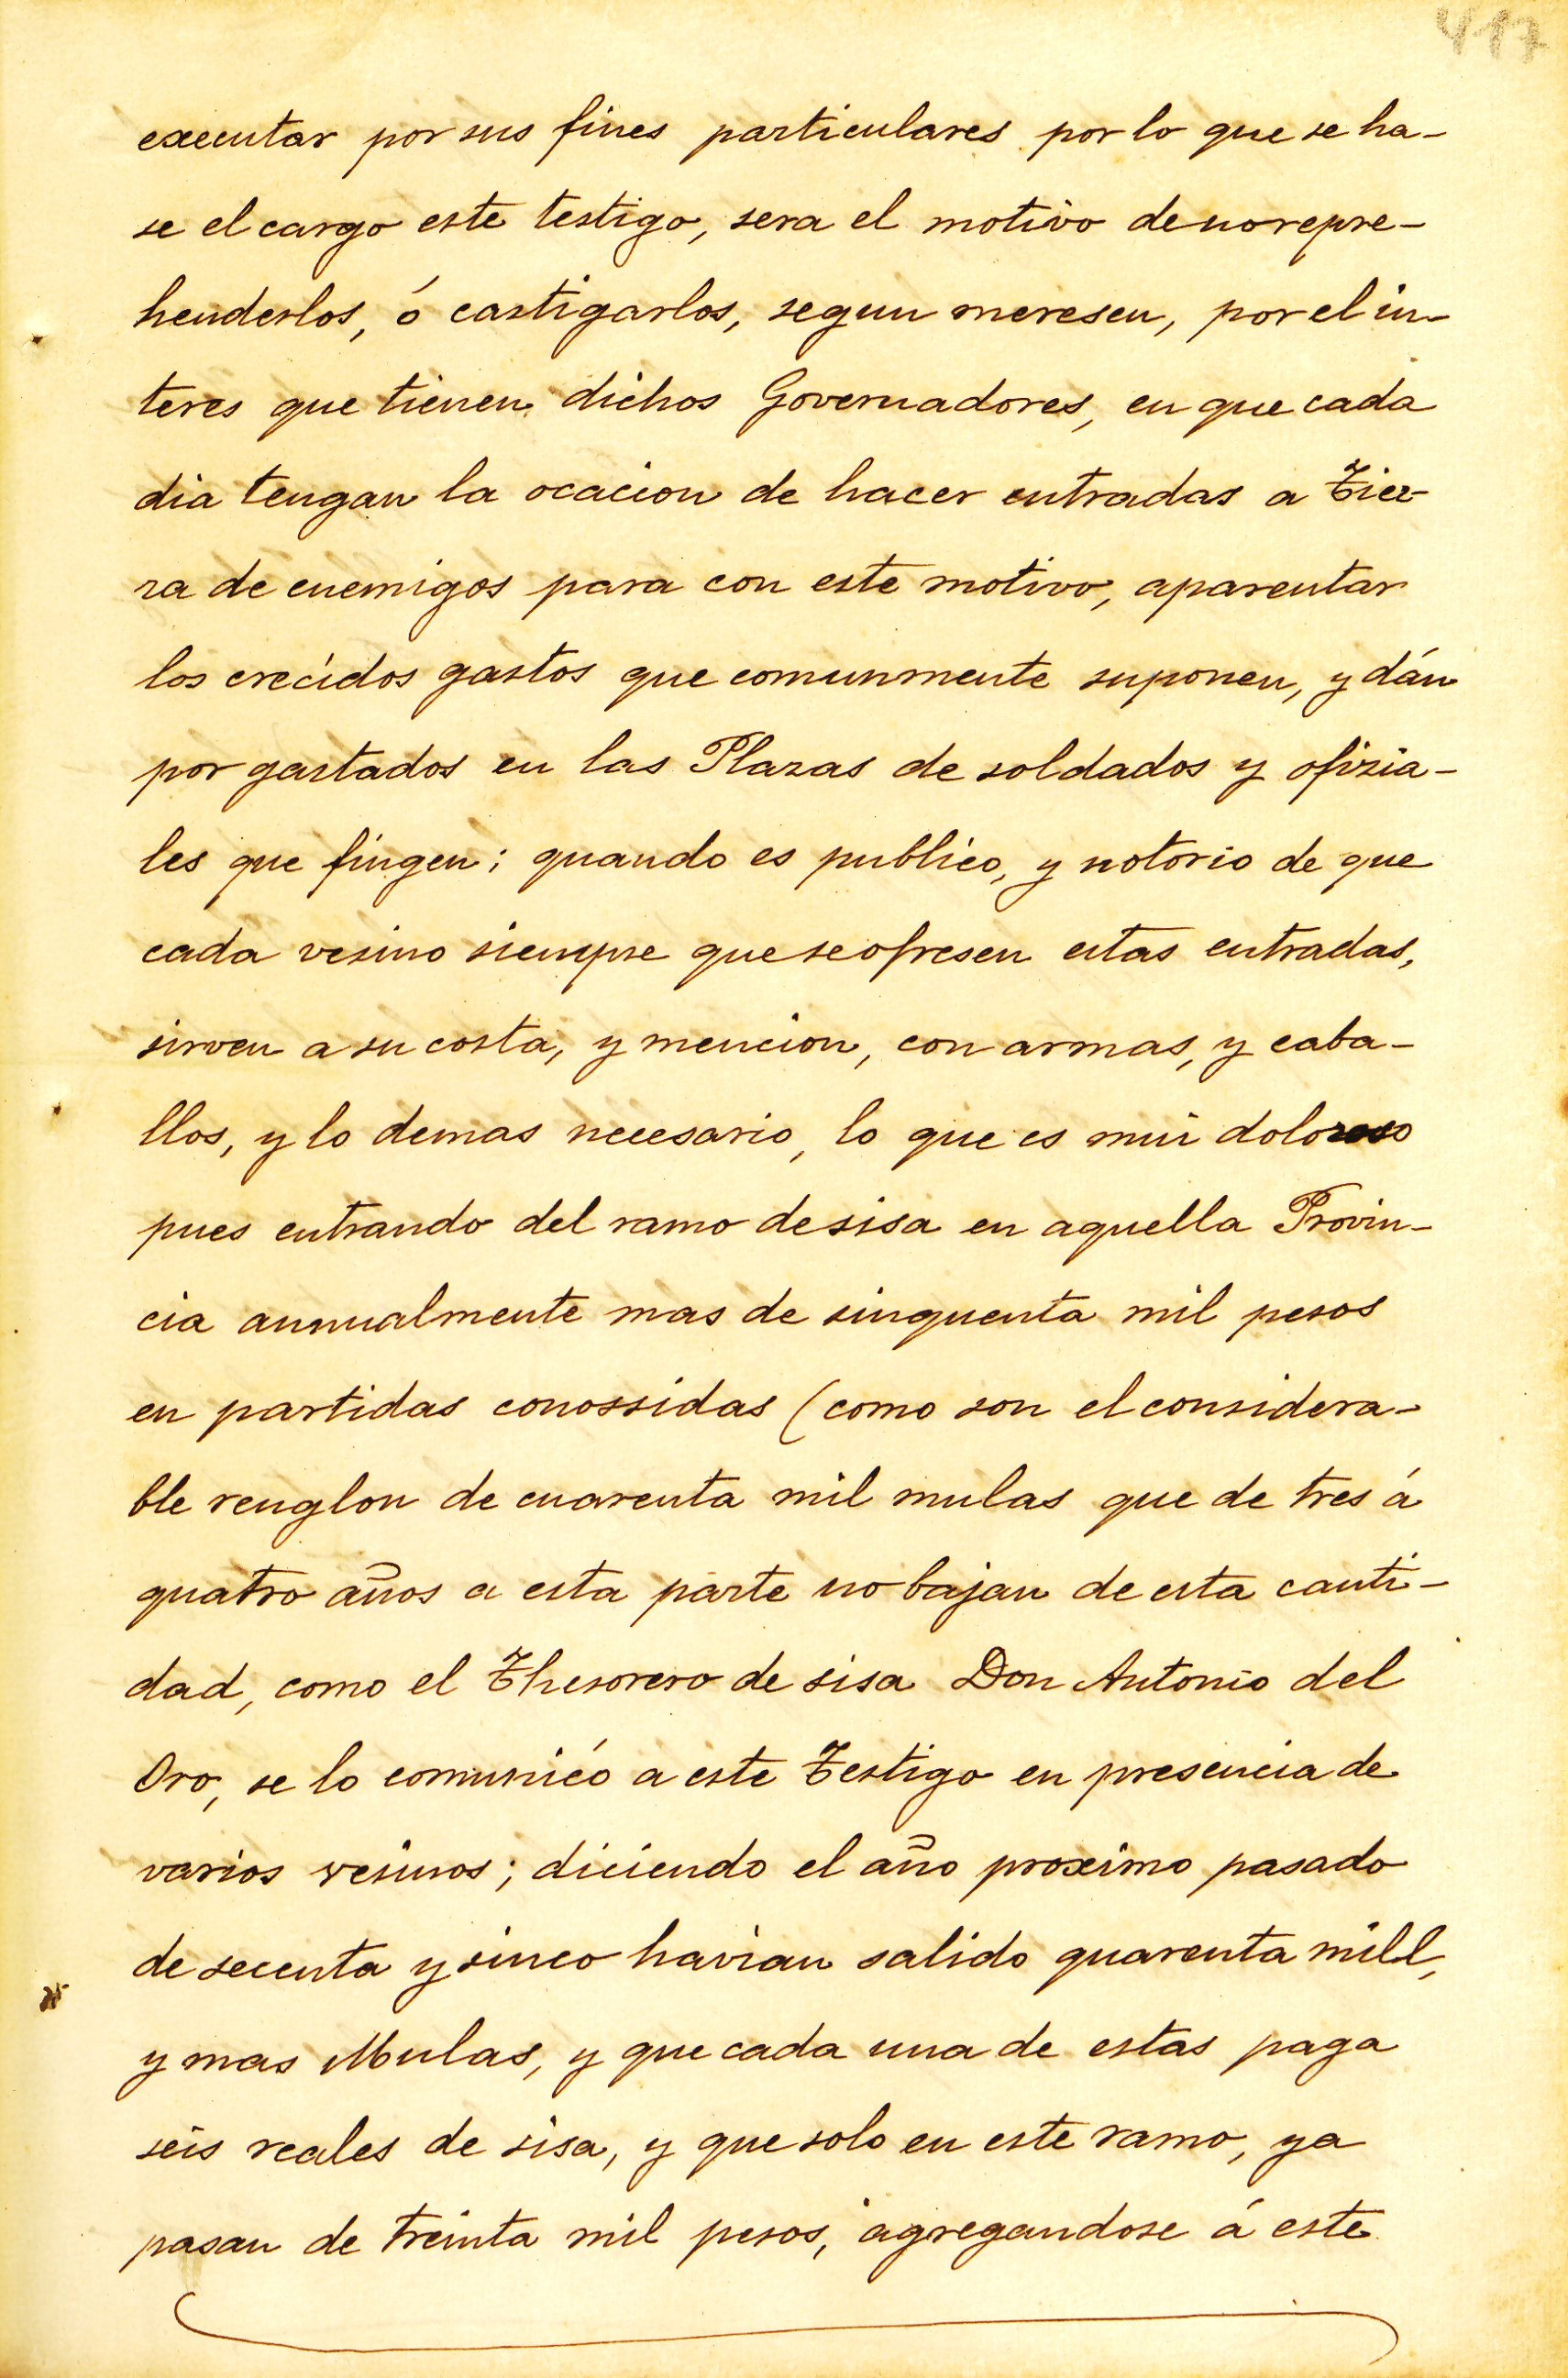 417
executar por sus fines particulares por lo que se ha-
se el cargo este testigo, sera el motivo de no repre-
henderlos, ó castigarlos, segun meresen, por el in-
teres que tienen dichos Governadores, en que cada
dia tengan la ocacion de hacer entradas a Tier-
ra de enemigos para con este motivo, aparentar
los crecidos gastos que comunmente suponen, y dán
por gastados en las Plazas de soldados y ofizia-
les que fingen; quando es publico, y notorio de que
cada vesino siempre que se ofresen estas entradas,
sirven a su costa, y mencion, con armas, y caba-
llos, y lo demas necesario, lo que es mui doloroso
pues entrando del ramo de sisa en aquella Provin-
cia annualmente mas de sinquenta mil pesos
en partidas conossidas (como son el considera-
ble renglon de cuarenta mil mulas que de tres á
quatro años a esta parte no bajan de esta canti-
dad, como el Thesorero de sisa Don Antonio del
Oro, se lo comunicó a este Testigo en presencia de
varios vesinos; diciendo el año proximo pasado
de secenta y sinco havian salido quarenta mill,
y mas Mulas, y que cada una de estas paga
seis reales de sisa, y que solo en este ramo, ya
pasan de treinta mil pesos, agregandose á este